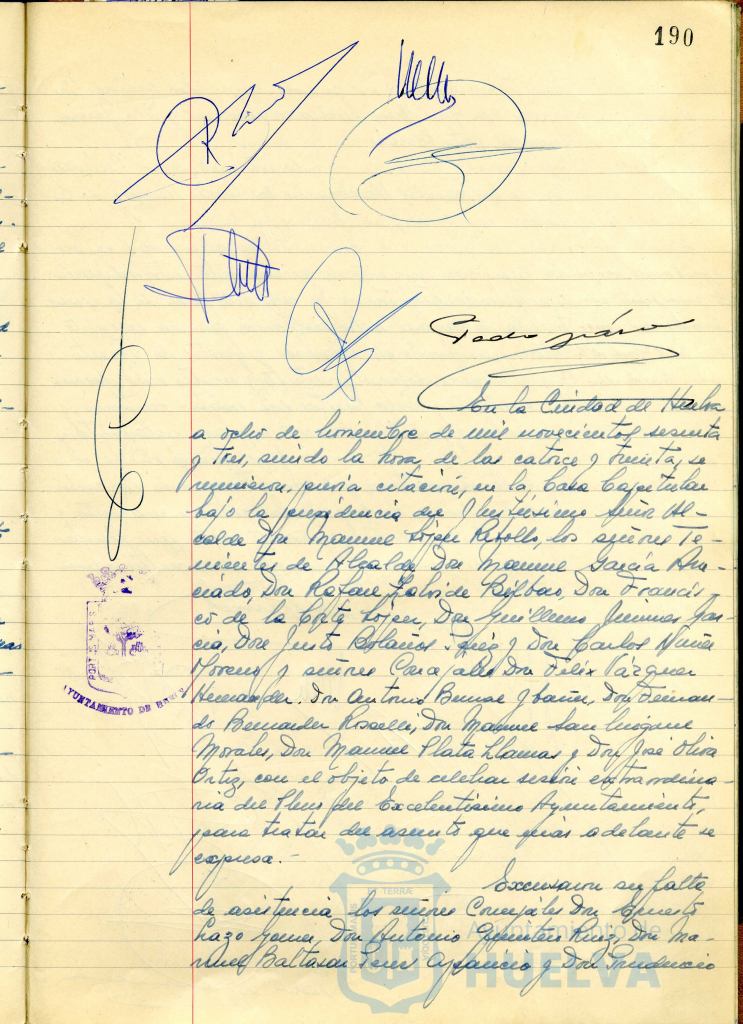 190
En la Ciudad de Huelva
a ocho de noviembre de mil novecientos sesenta
y tres, siendo la hora de las catorce y treinta, se
reunieron, previa citación, en la Casa Capitular
bajo la presidencia del Ilustrísimo Señor Al-
calde Don Manuel López Rebollo, los señores Te-
nientes de Alcalde, Don Manuel García
Don Rafael Bilbao, Don Francis-
co de la Corte López, Don Guillermo Jiménez Gar-
cía, Don Justo Bolaños y Don Carlos Núñez
Moreno y señores Concejales Don Félix Vázquez
Hernández, Don Antonio Bernal Ybáñez, Don Fernan-
do Bernardez Don Manuel San
Morales, Don Manuel Plata Llamas y Don José Oliva
Ortiz, con el objeto de celebrar sesión extraordina-
ria del Pleno del Excelentísimo Ayuntamiento,
para tratar del asunto que más adelante se
expresa.-
Excusaron su falta
de asistencia los señores Concejales Don Ernesto
Lazo Don Antonio Ruiz, Don Ma-
nuel Baltasar Aparicio y Don Prudencio
AYUNTAMIENTO DE
Ayuntamiento de
HUELVA